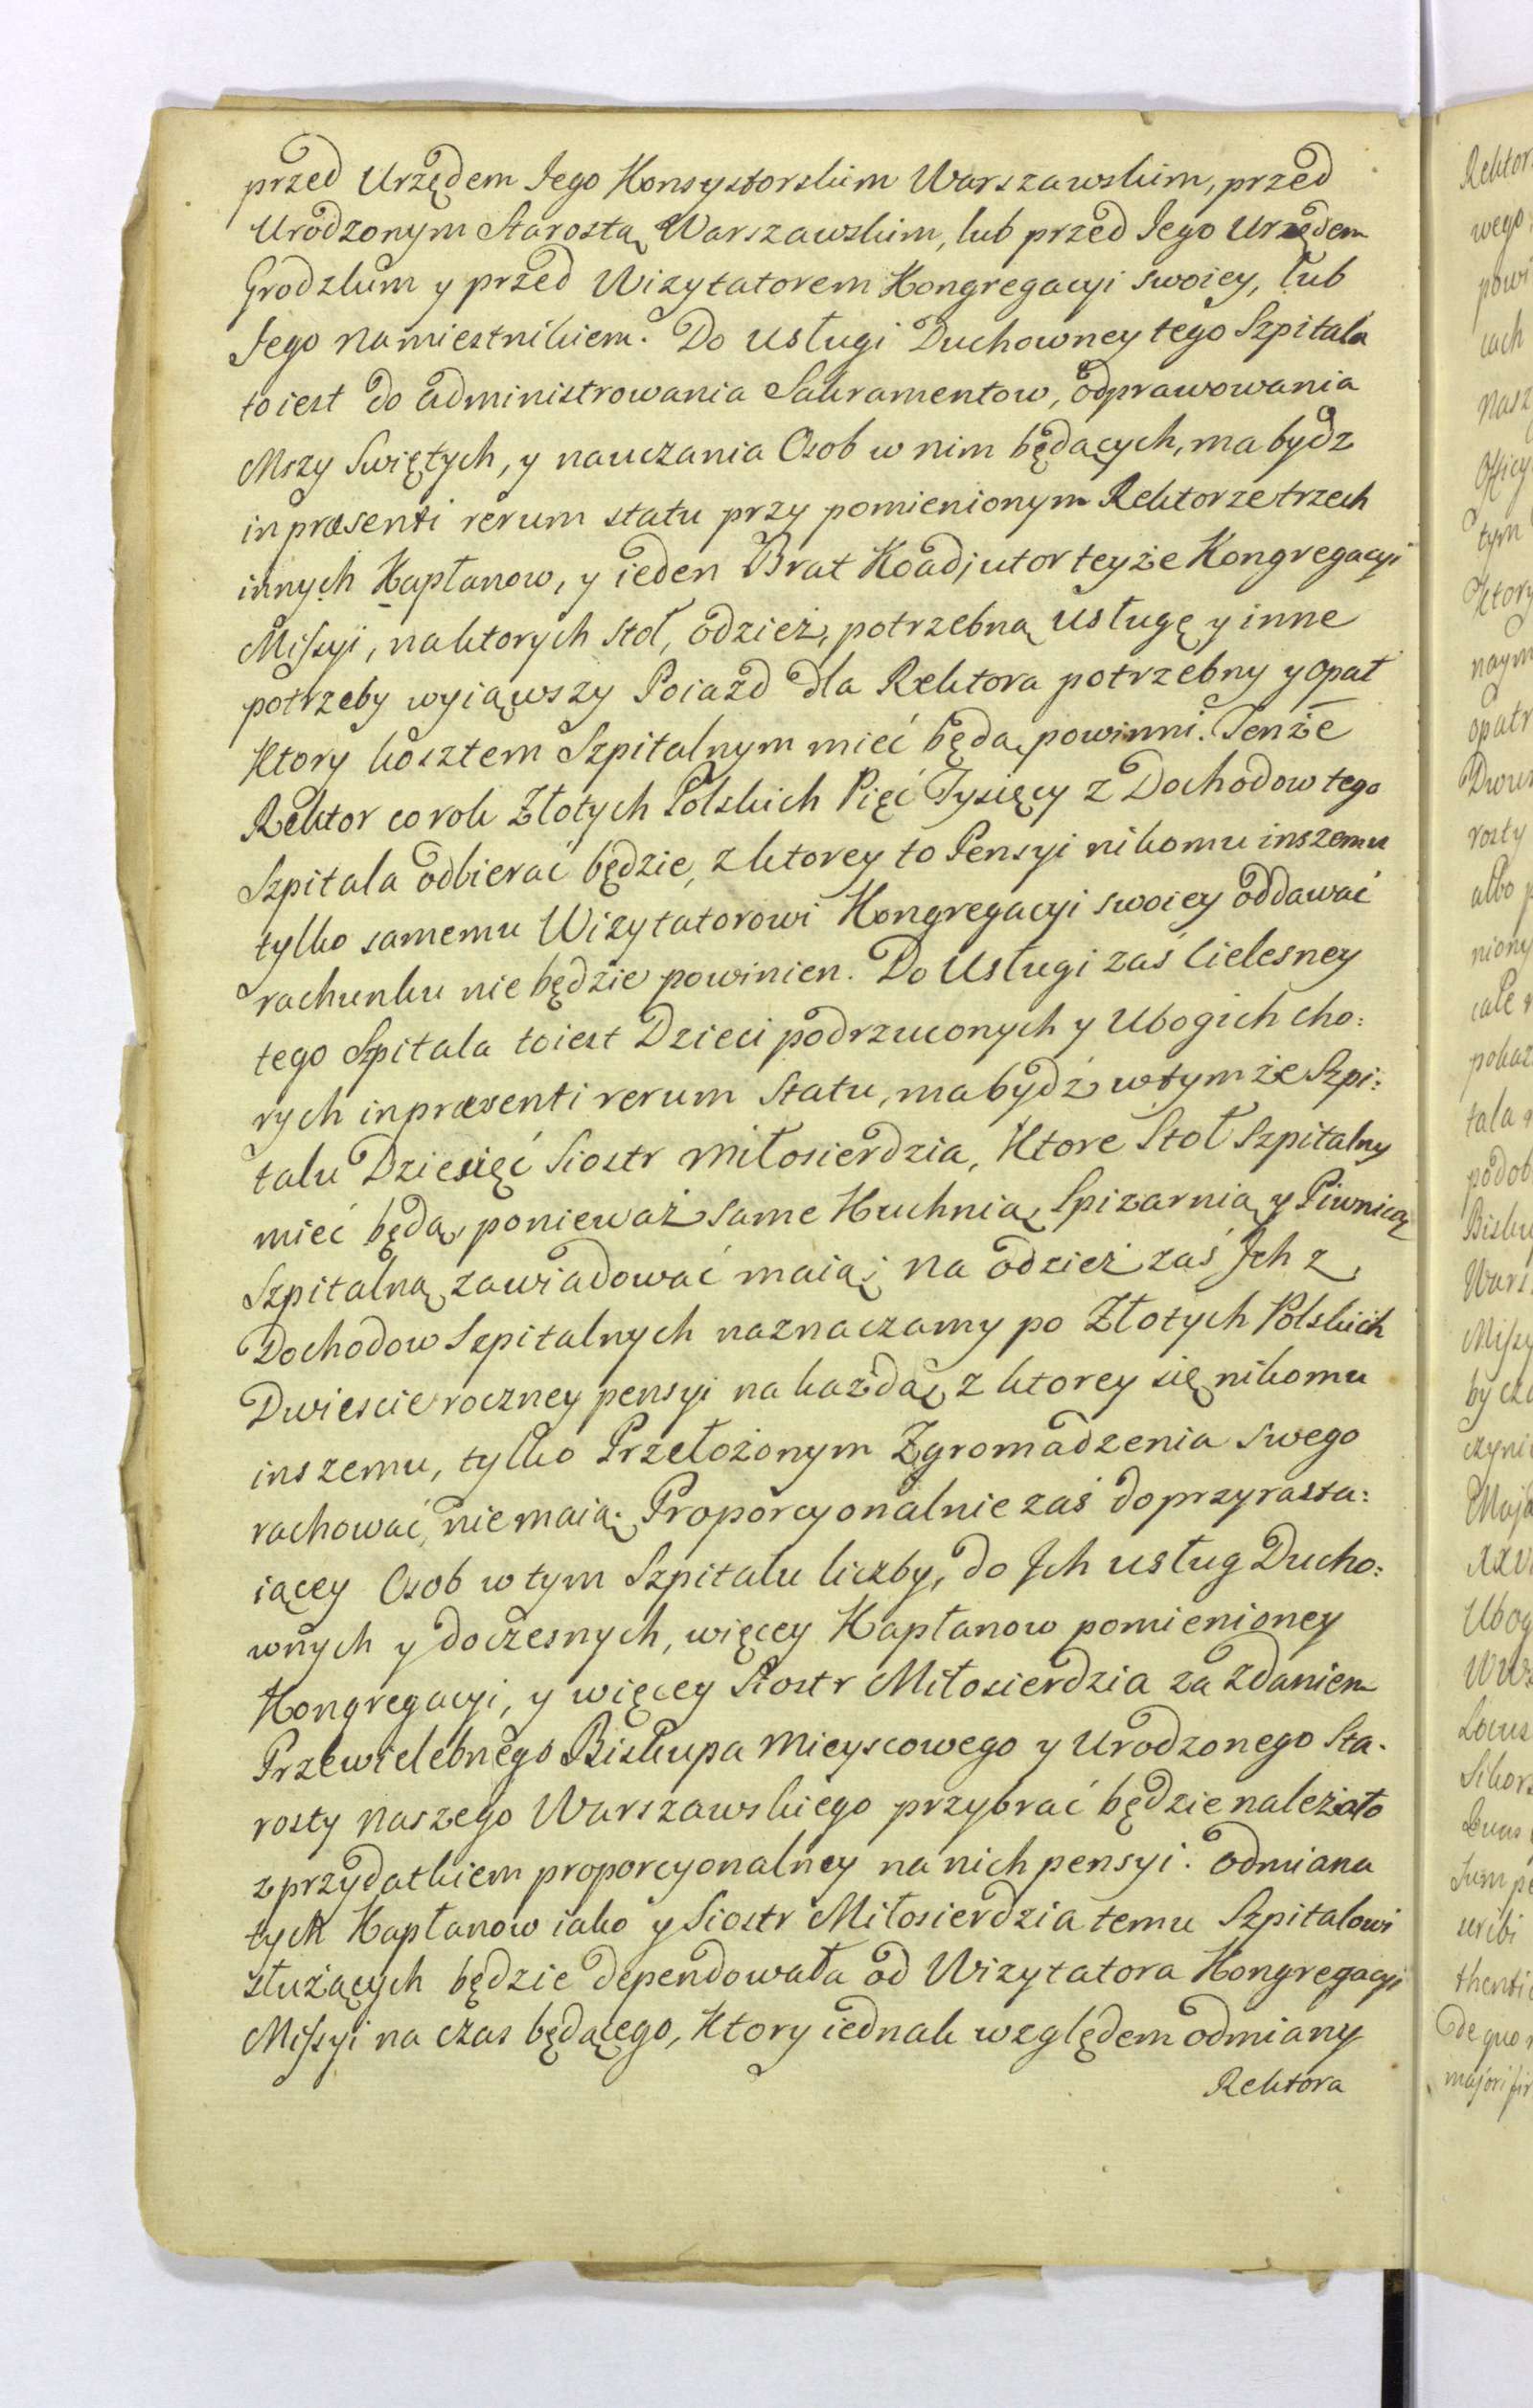 przed Urzędem Jego Konsystorskim Warszawskim, przed
Urodzonym Starostą Warszawskim, lub przed Jego Urzędem
Grodzkim y przed Wizytatorem Kongregacyi swoiey, lub
Jego Namiestnikiem. Do usługi Duchowney tego Szpitala
to iest do administrowania Sakramentow, odprawowania
Mszy Swiętych, y nauczania Osob w nim będących, ma bydz
in præsenti rerum statu przy pomienionym Rektorze trzech
innych Kapłanow, y ieden Brat Koadjutor teyże Kongregacyi
Missyi, na ktorych stoł, odzież, potrzebną usługę y inne
potrzeby wyiąwszy Poiazd dla Rektora potrzebny y opał
Ktory kosztem Szpitalnym mieć będą powinni. Tenże
Rektor co rok Złotych Polskich Pięć Tysięcy z Dochodow tego
Szpitala odbierać będzie, z ktorey to Pensyi nikomu inszemu
tylko samemu Wizytatorowi Kongregacyi swoiey oddawać
rachunku nie będzie powinien. Do Usługi zaś Cielesney
tego Szpitala to iest Dzieci podrzuconych y Ubogich cho:
rych in præsenti rerum Statu, ma bydź w tymże Szpi:
talu Dziesięć Siostr Miłosierdzia, Ktore Stoł Szpitalny
mieć będą, ponieważ same Kuchnią, Spizarnią y Piwnicą
Szpitalną zawiadować maią; na odzież zaś Jch z
Dochodow Szpitalnych naznaczamy po Złotych Polskich
Dwiescie roczney pensyi na każdą, z ktorey się nikomu
inszemu, tylko Przełożonym Zgromadzenia swego
rachować, nie maią. Proporcyonalnie zaś do przyrasta:
iącey Osob w tym Szpitalu liczby, do Jch usług Ducho:
wnych y doczesnych, więcey Kapłanow pomienioney
Kongregacyi, y więcey Siostr Miłosierdzia za zdaniem
Przewielebnego Biskupa Mieyscowego y Urodzonego Sta.
rosty naszego Warszawskiego przybrać będzie należało
z przydatkiem proporcyonalney na nich pensyi. Odmiana
tych Kapłanow iako y Siostr Miłosierdzia temu Szpitalowi
służących będzie dependowała od Wizytatora Kongregacyi
Missyi na czas będącego, Ktory iednak względem odmiany
Rektora